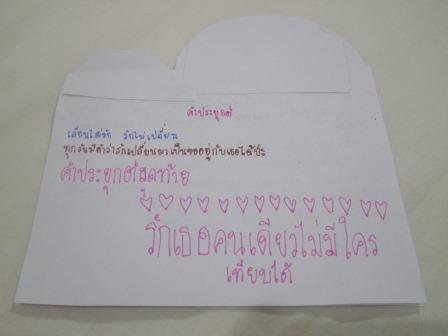 คำประยุกต์
เงื่อนไขรัก รักไม่เปลี่ยน
ทุกวันมีคำว่ารักเปลี่ยนมาเป็นขออยู่กับเธอได้ป่ะ
คำประยุกต์สุดท้าย
รักเธอคนเดียวไม่มีใคร
เทียบได้